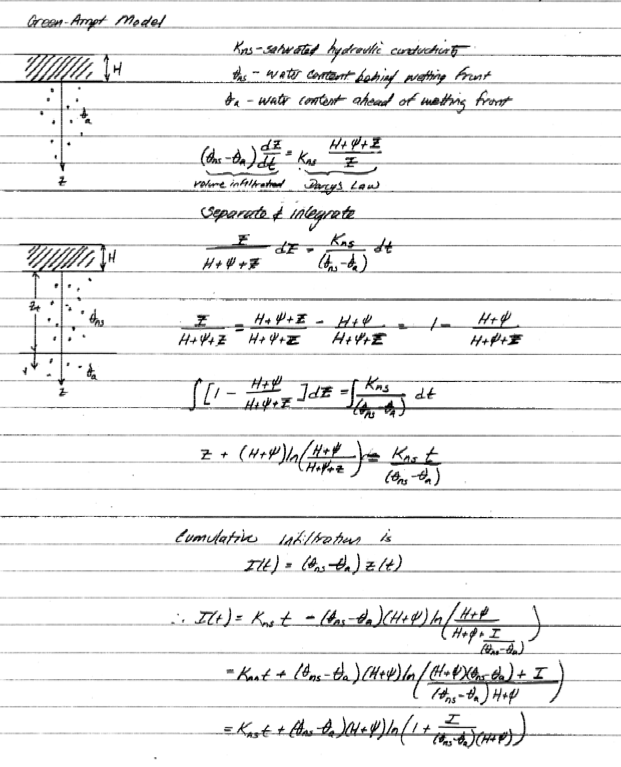 Green-Ampt Model
H
θa
z
Kns - saturated hydraulic conductivity
θns - water content behind wetting front
θa - water content ahead of wetting front
(θns-θa) dZ/dt = Kns (H+Ψ+Z)/Z
volume infiltrated Darcys Law
Separate & integrate
Z/(H+Ψ+Z) dZ = Kns/(θns-θa) dt
H
θns
θa
z
Z/(H+Ψ+Z) = (H+Ψ+Z)/(H+Ψ+Z) - (H+Ψ)/(H+Ψ+Z) = 1 - (H+Ψ)/(H+Ψ+Z)
∫[1 - (H+Ψ)/(H+Ψ+Z)]dZ = ∫ Kns/(θns-θa) dt
Z + (H+Ψ)ln((H+Ψ)/(H+Ψ+Z)) = Kns t/(θns-θa)
Cumulative infiltration is
I(t) = (θns-θa) z(t)
∴ I(t) = Kns t - (θns-θa)(H+Ψ)ln((H+Ψ)/(H+Ψ+I/(θns-θa)))
= Kns t + (θns-θa)(H+Ψ)ln(((H+Ψ)(θns-θa)+I)/((θns-θa)H+Ψ))
= Kns t + (θns-θa)(H+Ψ)ln(1 + I/((θns-θa)(H+Ψ)))